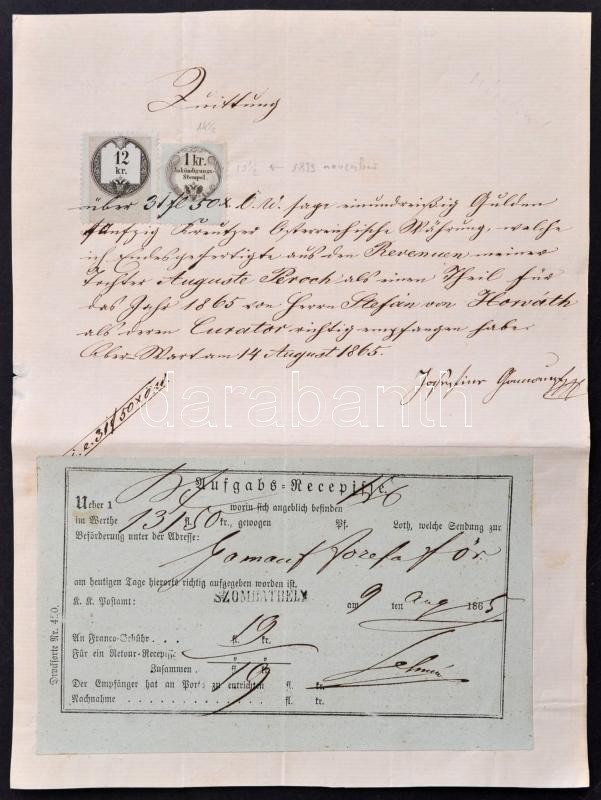 Quittung
14½
12
kr.
1 kr.
Ankündigungs-
Stempel.
13½ ← 1859 november
über 31 fl 50 x Ö. W. sage einunddreißig Gulden
fünfzig Kreutzer Österreichische Währung, welche
ich Endesgefertigte aus den Revenuen meiner
Tochter Auguste Peroch als einen Theil für
das Jahr 1865 von Herrn Stefan von Horváth
als deren Curator richtig empfangen habe.
Ober-Wart am 14 August 1865.
31 f 50 x ö.W.
darabanth
Aufgabs-Recepisse.
Ueber 1 worin sich angeblich befinden
im Werthe 131 fl. 50 kr., gewogen Pf. Loth, welche Sendung zur
Beförderung unter der Adresse:
am heutigen Tage hierorts richtig aufgegeben worden ist.
K. K. Postamt: SZOMBATHELY am 9 ten Aug 1865
An Franco-Gebühr . . . fl. 19 kr.
Für ein Retour-Recepisse " "
Zusammen . fl. 19 kr.
Der Empfänger hat an Porto zu entrichten fl. kr.
Nachnahme . . . . . . . . . . . . fl. kr.